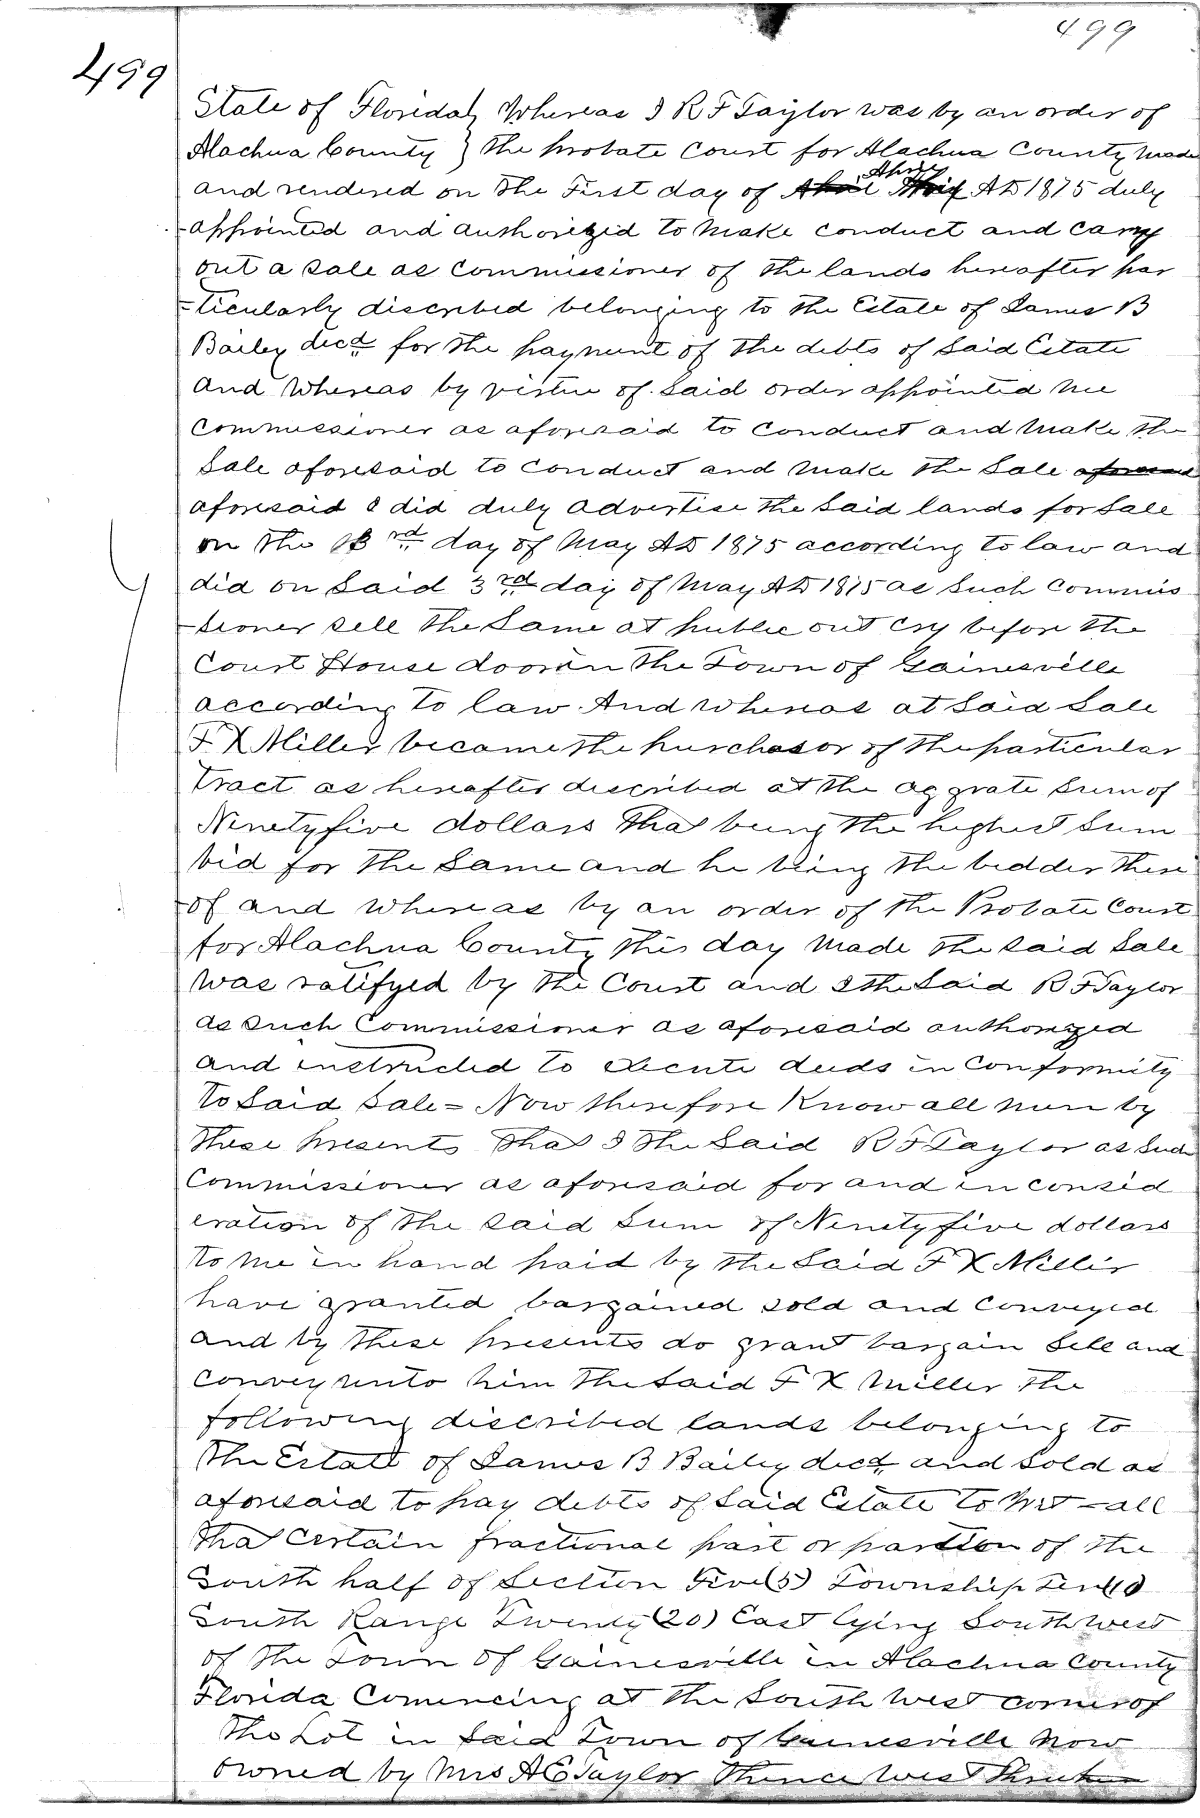 499
499
State of Florida } Whereas I R F Taylor was by an order of
Alachua County } the probate Court for Alachua County made
and rendered on the First day of April April AD 1875 duly
-appointed and authorized to make conduct and carry
out a sale as commissioner of the lands hereafter par
-ticularly discribed belonging to the Estate of James B
Bailey decd for the payment of the debts of said Estate
and whereas by virtue of said order appointed me
commissioner as aforesaid to conduct and make the
Sale aforesaid to conduct and make the Sale
aforesaid I did duly advertise the said lands for sale
on the 3rd day of May AD 1875 according to law and
did on said 3rd day of May AD 1875 as such commis
-sioner sell the same at public out cry before the
Court House door in the Town of Gainesville
according to law And whereas at said sale
F X Miller became the purchasor of the particular
tract as hereafter discribed at the aggrate sum of
Ninetyfive dollars that being the highest sum
bid for the same and he being the bidder there
-of and whereas by an order of the Probate Court
for Alachua County this day made the said sale
was ratifyed by the Court and I the said R F Taylor
as such commissioner as aforesaid authorized
and instructed to execute deeds in conformity
to said sale = Now therefore Know all men by
these presents that I the said R F Taylor as such
commissioner as aforesaid for and in consid
eration of the said sum of Ninetyfive dollars
to me in hand paid by the said F X Miller
have granted bargained sold and conveyed
and by these presents do grant bargain sell and
convey unto him the said F X Miller the
following discribed lands belonging to
the Estate of James B Bailey decd and sold as
aforesaid to pay debts of said Estate to wit - all
that certain fractional part or portion of the
South half of Section Five (5) Township Ten (10)
South Range Twenty (20) East lying South west
of the Town of Gainesville in Alachua County
Florida Comencing at the South West corner of
the Lot in said Town of Gainesville now
owned by Mrs A E Taylor thence West